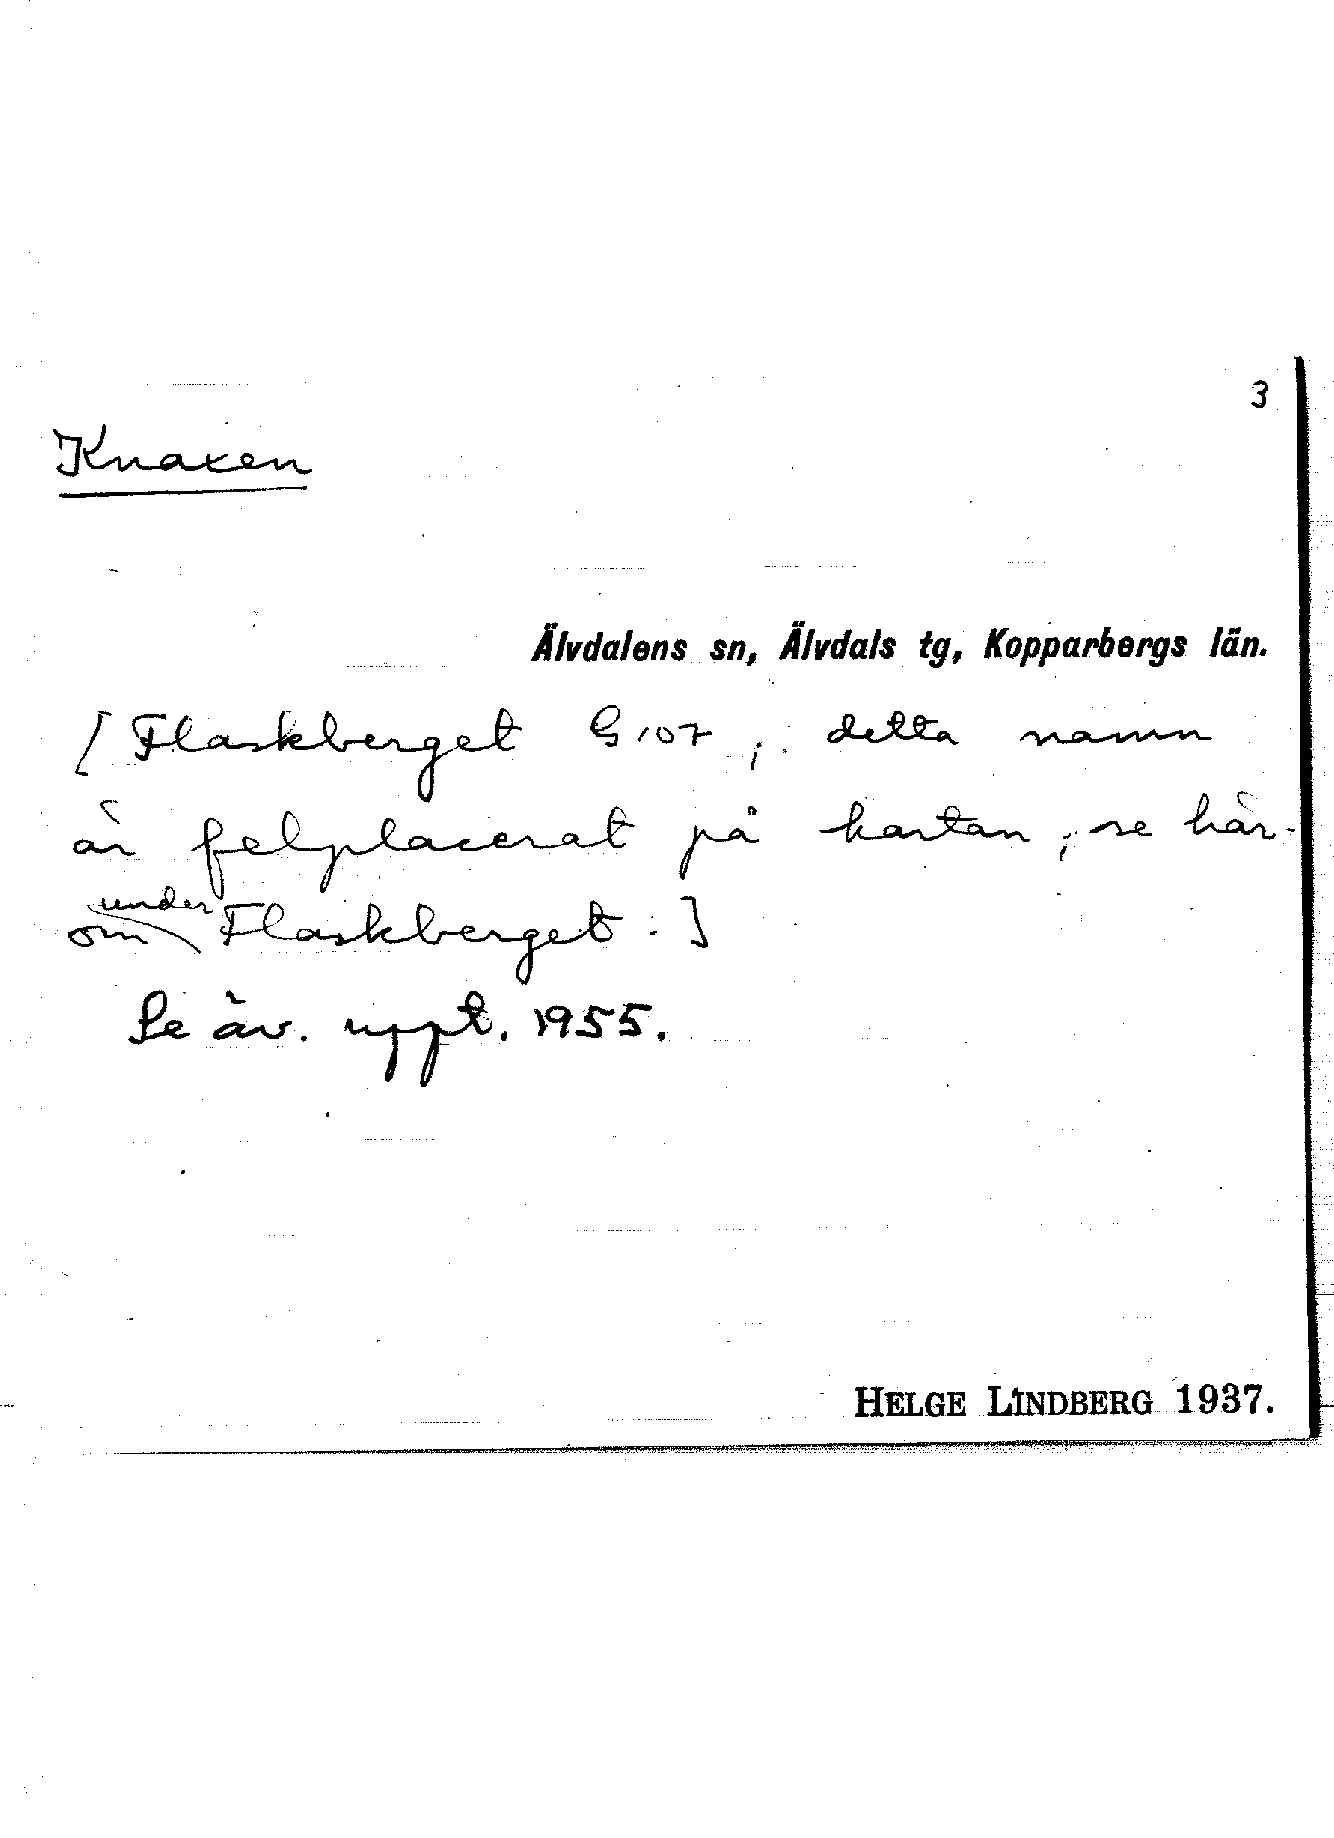 3
Knaxen
Älvdalens sn, Älvdals tg, Kopparbergs län.
[Flaskberget G107; detta namn
är felplacerat på kartan; se här-
om under Flaskberget.]
Se äv. uppt. 1955.
HELGE LINDBERG 1937.